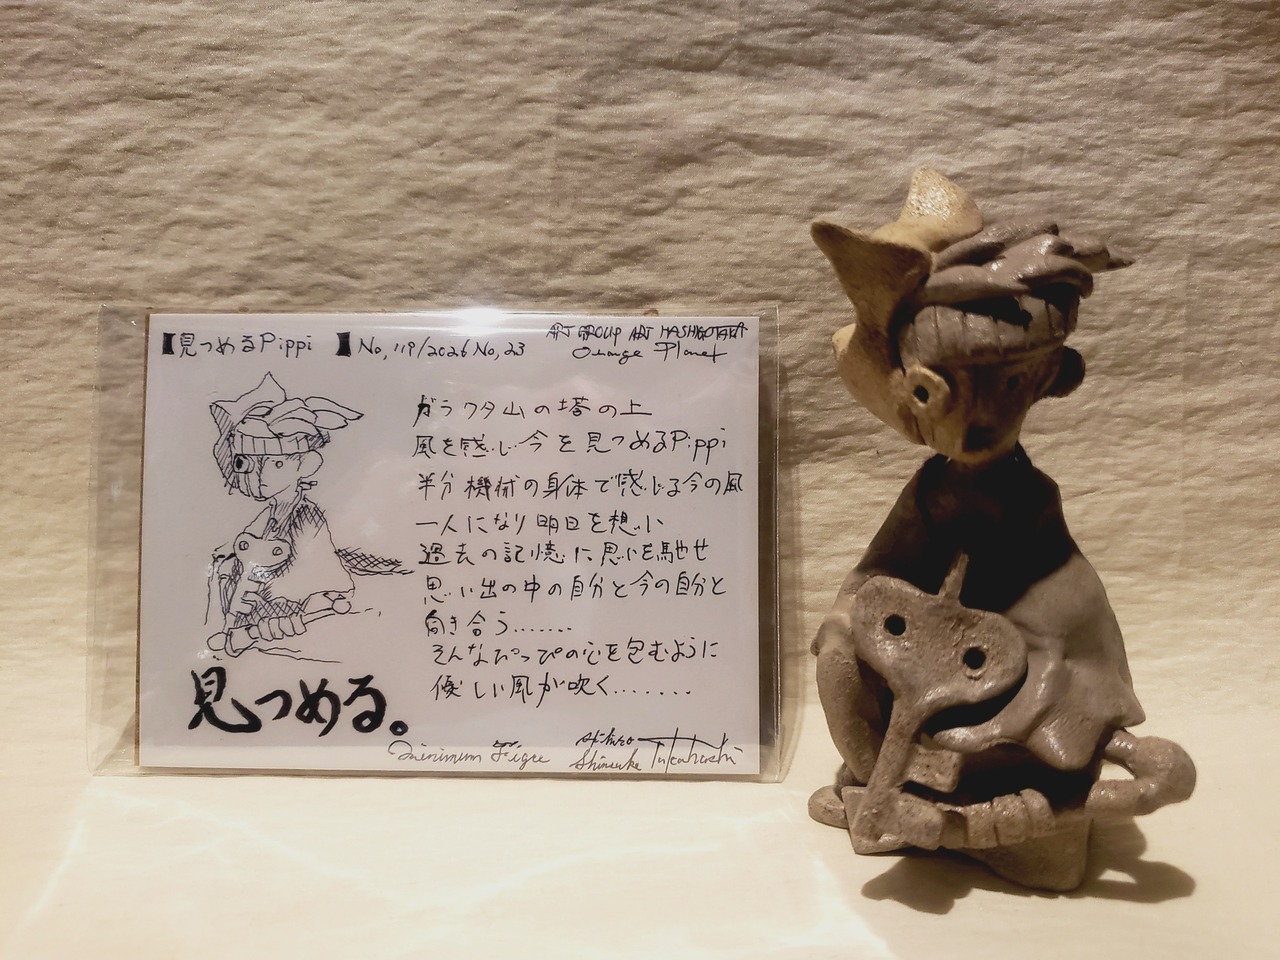 【見つめるPippi 】No,119/2026 No,23
ART GROUP ART HASHIGOTAKA
Orange Planet
ガラクタ山の塔の上
風を感じ今を見つめるPippi
半分機械の身体で感じる今の風
一人になり明日を想い
過去の記憶に思いを馳せ
思い出の中の自分と今の自分と
向き合う.......
そんなぴっぴの心を包むように
優しい風が吹く........
見つめる。
Minimum Figre
Shinsuke Takahashi